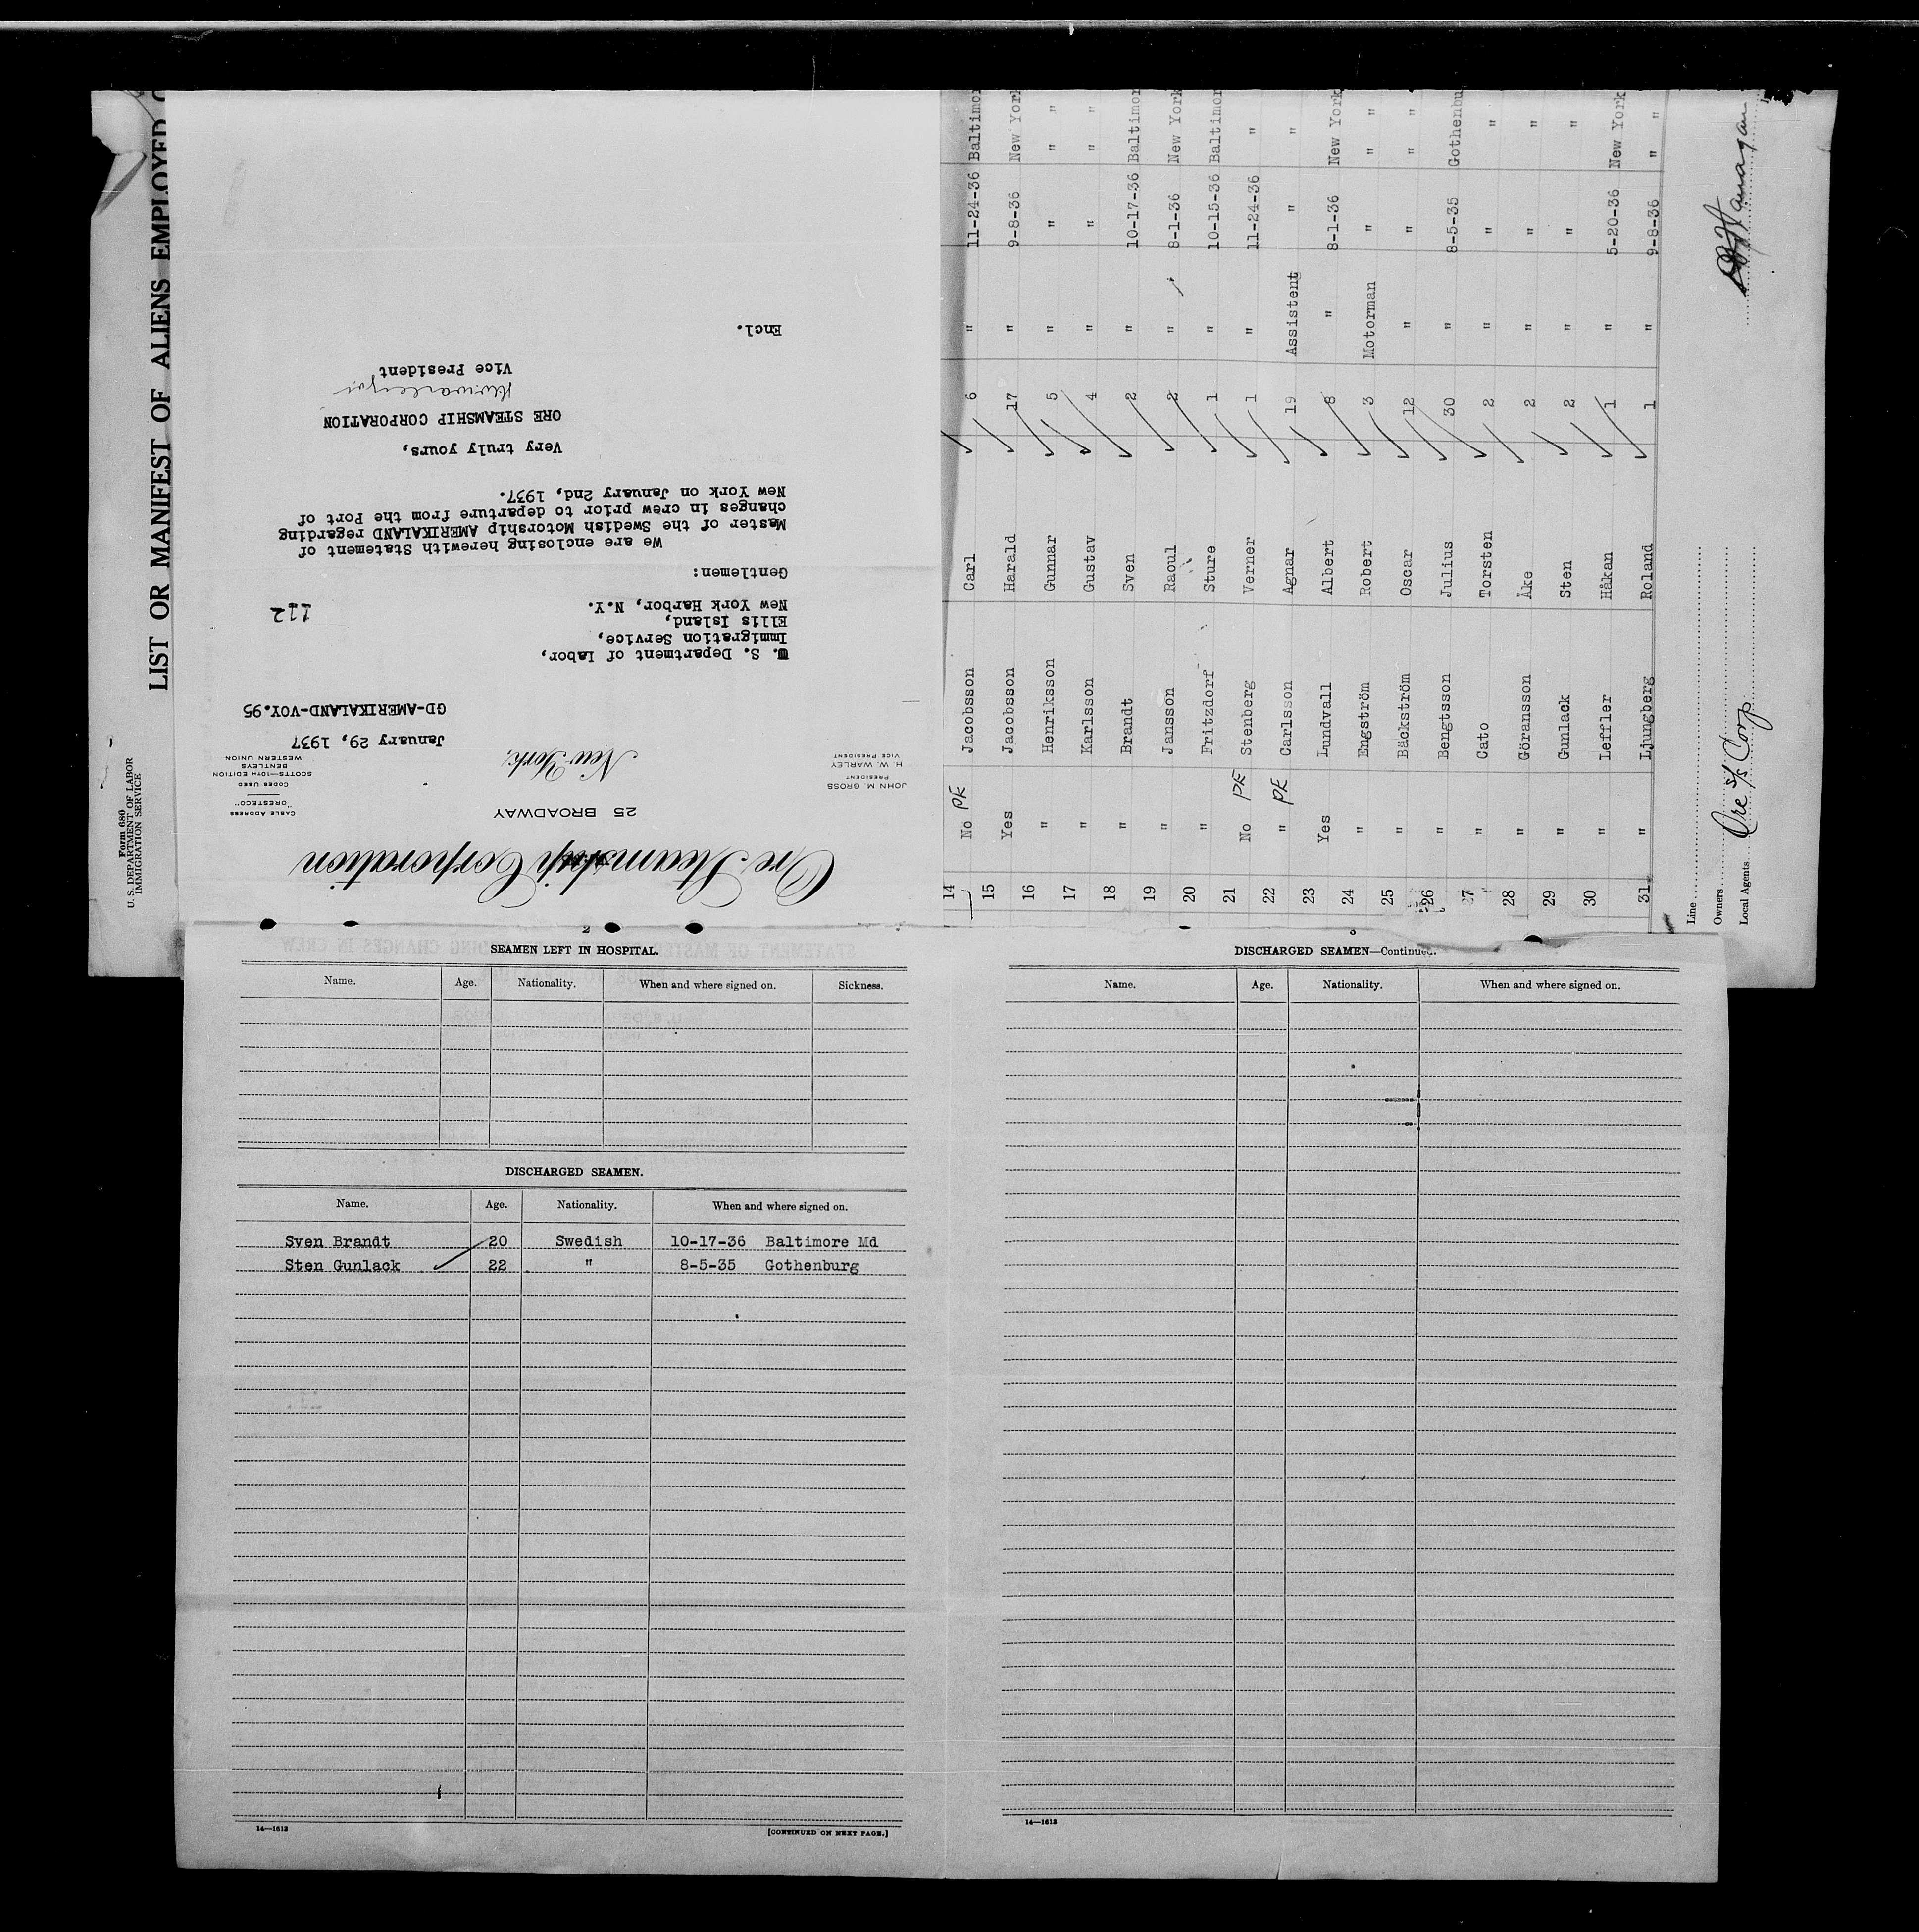 Form 680
U. S. DEPARTMENT OF LABOR
IMMIGRATION SERVICE
LIST OR MANIFEST OF ALIENS EMPLOYED
Ore Steamship Corporation
25 BROADWAY
New York,
JOHN M. GROSS
PRESIDENT
H. W. WARLEY
VICE PRESIDENT
CABLE ADDRESS
"ORESTECO"
CODES USED
SCOTTS—10TH EDITION
BENTLEYS
WESTERN UNION
January 29, 1937
GD-AMERIKALAND-VOY.95
U. S. Department of Labor,
Immigration Service,
Ellis Island,
New York Harbor, N.Y.
112
Gentlemen:
We are enclosing herewith Statement of
Master of the Swedish Motorship AMERIKALAND regarding
changes in crew prior to departure from the Port of
New York on January 2nd, 1937.
Very truly yours,
ORE STEAMSHIP CORPORATION
Vice President
Encl.
14 No PE Jacobsson Carl 6 " 11-24-36 Baltimor
15 Yes Jacobsson Harald 17 " 9-8-36 New York
16 " Henriksson Gunnar 5 " " " "
17 " Karlsson Gustav 4 " " " "
18 " Brandt Sven 2 " 10-17-36 Baltimor
19 " Jansson Raoul 2 " 8-1-36 New York
20 " Fritzdorf Sture 1 " 10-15-36 Baltimor
21 No PE Stenberg Verner 1 " 11-24-36 "
22 " PE Carlsson Agnar 19 Assistent " "
23 Yes Lundvall Albert 8 " 8-1-36 New York
24 " Engström Robert 3 Motorman " " "
25 " Bäckström Oscar 12 " " " "
26 " Bengtsson Julius 30 " 8-5-35 Gothenbu
27 " Cato Torsten 2 " " "
28 " Göransson Åke 2 " " "
29 " Gunlack Sten 2 " " "
30 " Leffler Håkan 1 " 5-20-36 New York
31 " Ljungberg Roland 1 " 9-8-36 " "
Line
Owners
Local Agents Ore S/S Corp
2
SEAMEN LEFT IN HOSPITAL.
Name. Age. Nationality. When and where signed on. Sickness.
DISCHARGED SEAMEN.
Name. Age. Nationality. When and where signed on.
Sven Brandt 20 Swedish 10-17-36 Baltimore Md
Sten Gunlack 22 " 8-5-35 Gothenburg
14—1613
[CONTINUED ON NEXT PAGE.]
3
DISCHARGED SEAMEN—Continued.
Name. Age. Nationality. When and where signed on.
14—1613